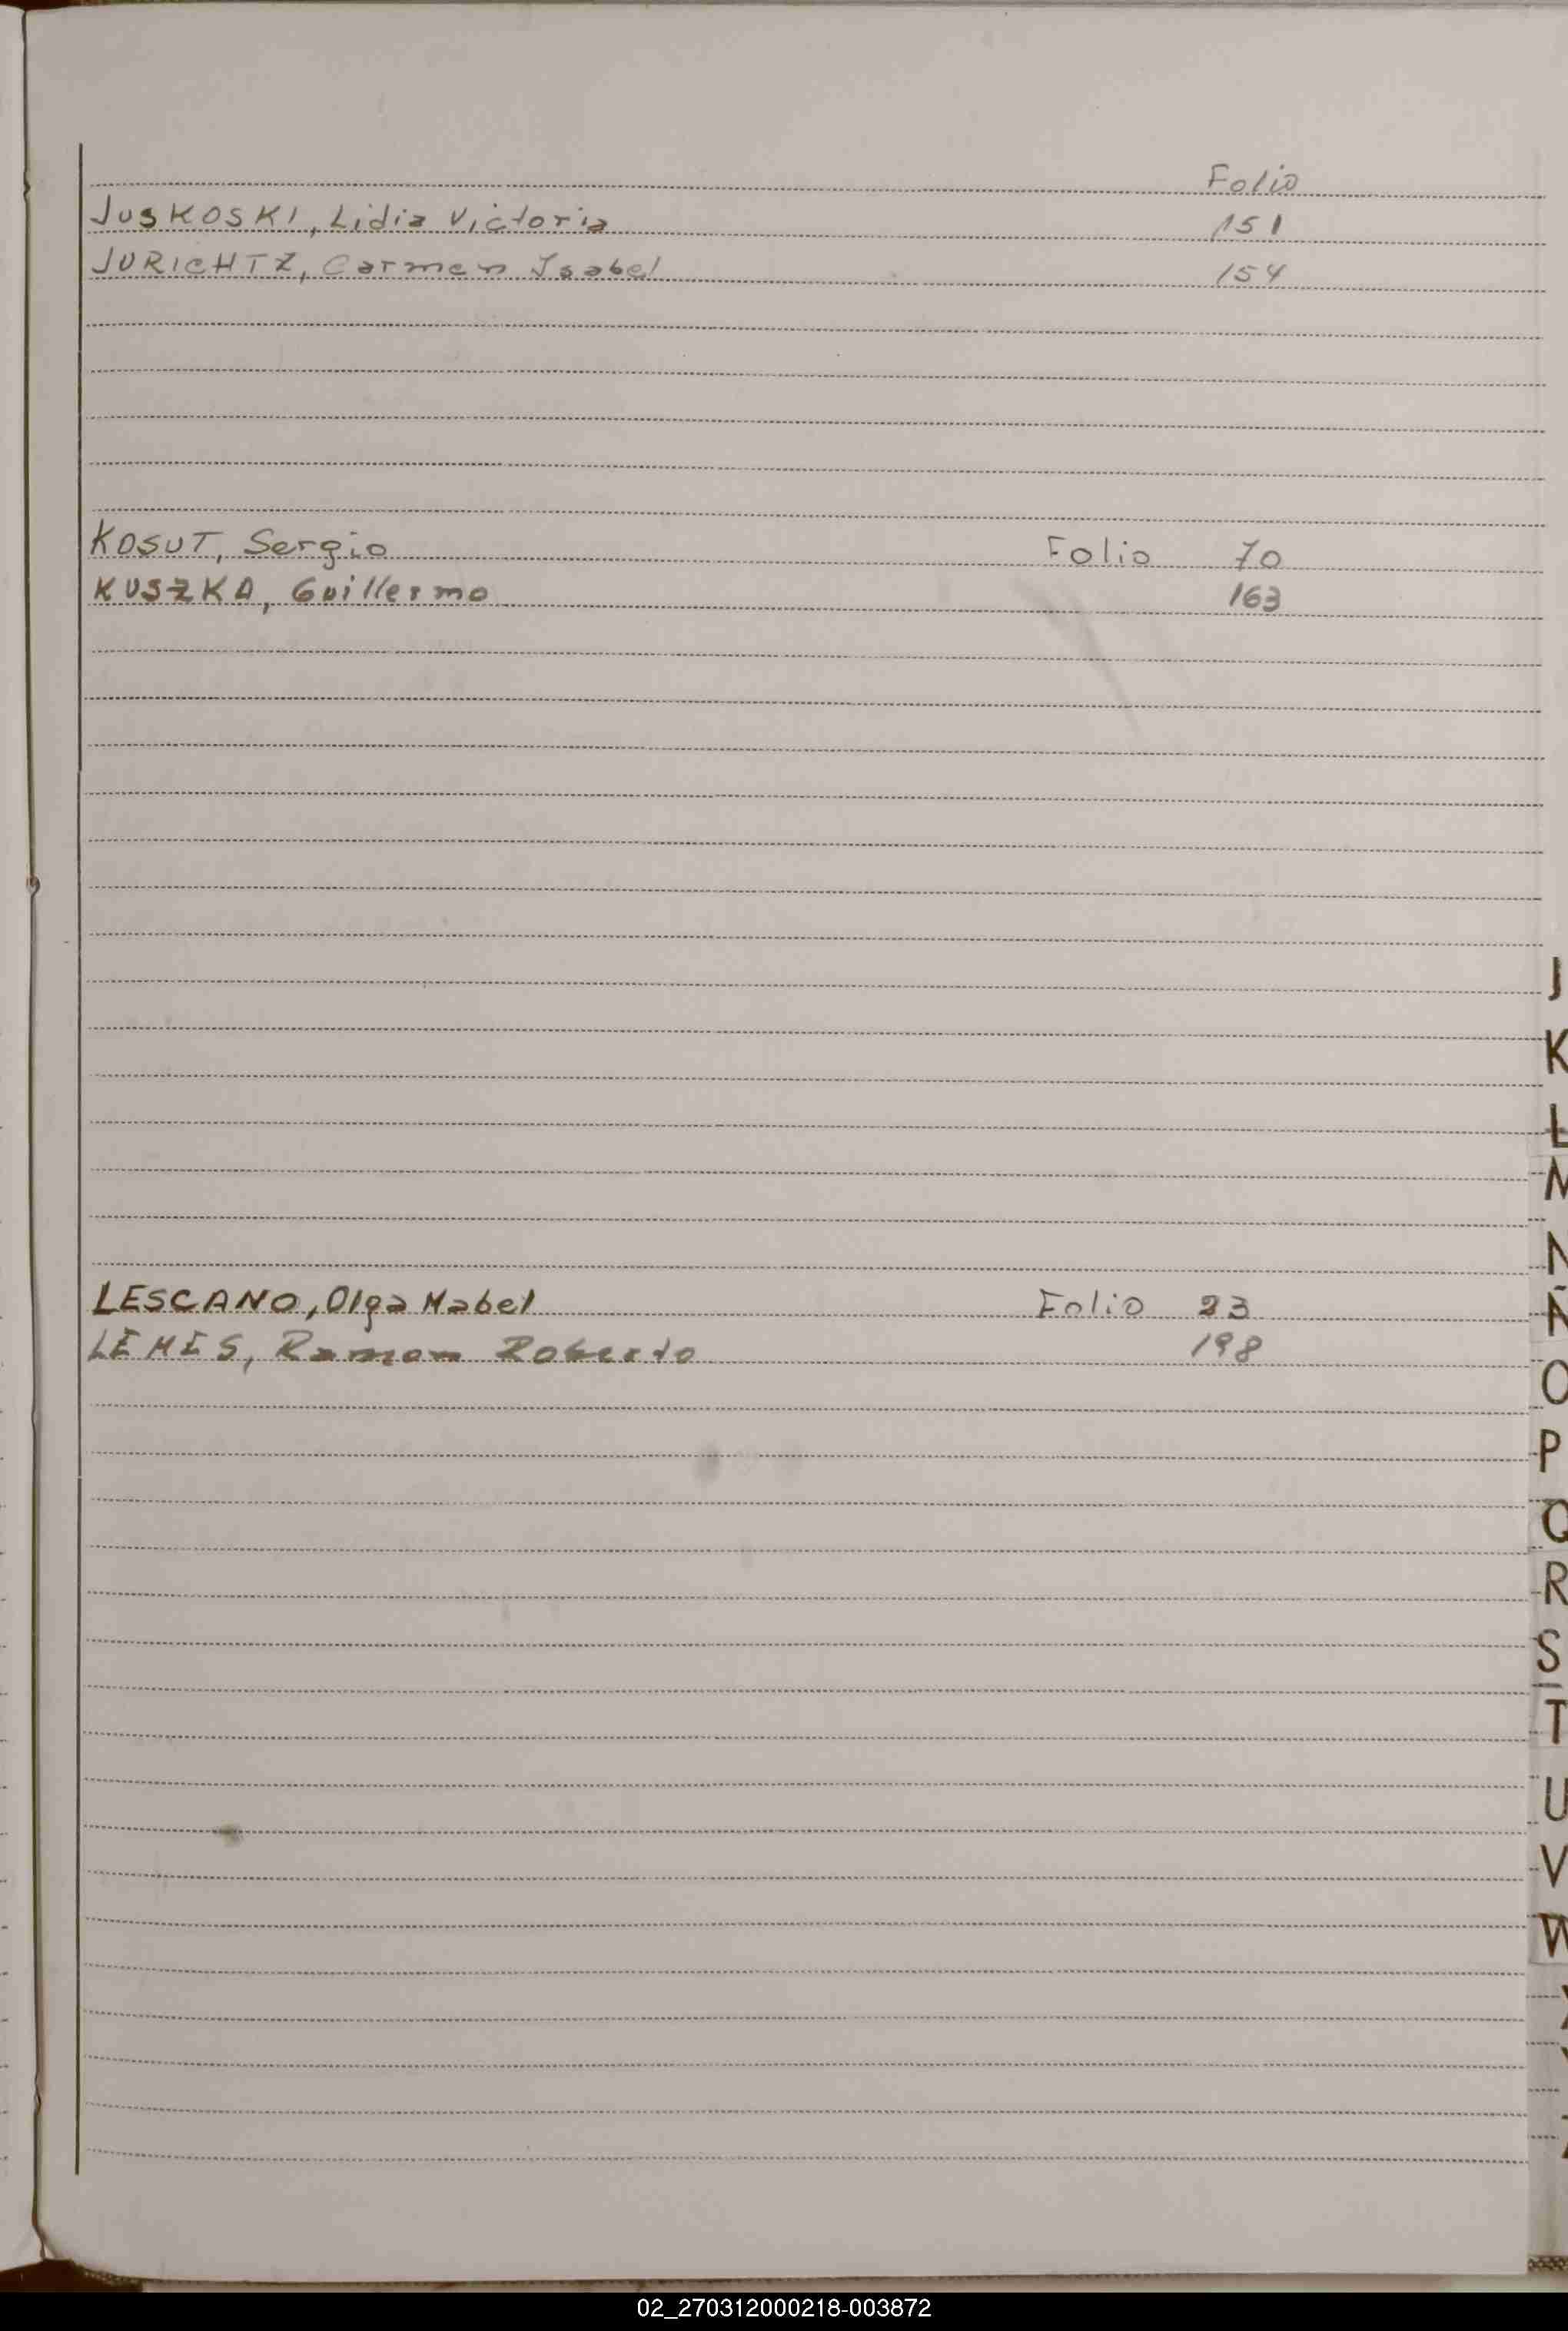 Folio
JUSKOSKI, Lidia Victoria 151
JURICHTZ, Carmen Isabel 154
KOSUT, Sergio Folio 70
KUSZKA, Guillermo 163
J
K
L
M
N
Ñ
LESCANO, Olga Mabel Folio 23
LEMES, Ramon Roberto 198
O
P
Q
R
S
T
U
V
W
02_270312000218-003872